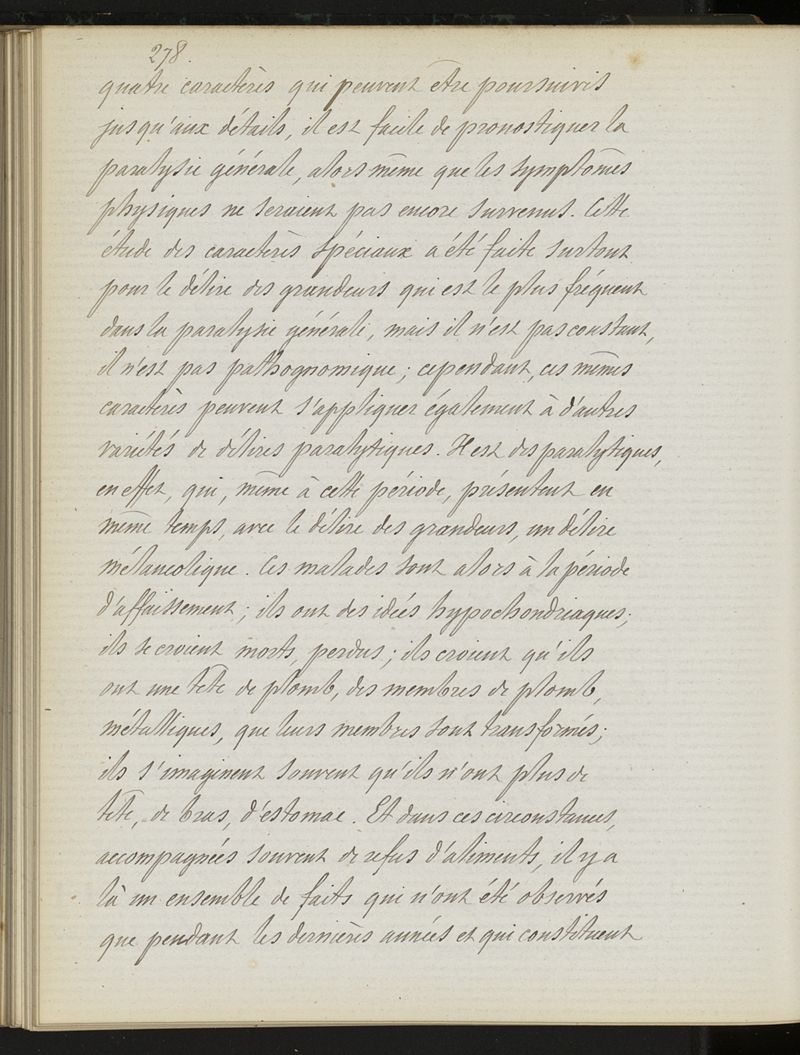 278.
quatre caractères qui peuvent être poursuivis
jusqu'aux détails, il est facile de pronostiquer la
paralysie générale, alors même que les symptômes
physiques ne seraient pas encore survenus. Cette
étude des caractères spéciaux a été faite surtout
pour le délire des grandeurs qui est le plus fréquent
dans la paralysie générale, mais il n'est pas constant,
il n'est pas pathognomique ; cependant, ces mêmes
caractères peuvent s'appliquer également à d'autres
variétés de délires paralytiques. Il est des paralytiques,
en effet, qui, même à cette période, présentent en
même temps, avec le délire des grandeurs, un délire
mélancolique. Ces malades sont alors à la période
d'affaissement ; ils ont des idées hypochondriaques ;
ils se croient morts, perdus ; ils croient qu'ils
ont une tête de plomb, des membres de plomb,
métalliques, que leurs membres sont transformés ;
ils s'imaginent souvent qu'ils n'ont plus de
tête, de bras, d'estomac. Et dans ces circonstances,
accompagnées souvent de refus d'aliments, il y a
là un ensemble de faits qui n'ont été observés
que pendant les dernières années et qui constituent